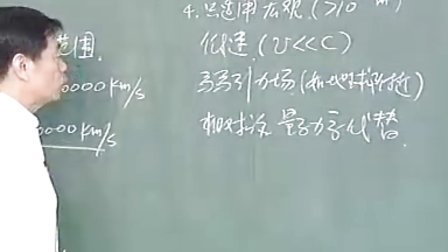 4. 只适用宏观.(>10 m)
范围.
低速.(υ<<C)
0000 km/s
弱引力场(如地球附近)
0000 km/s
相对论 量子力学代替.